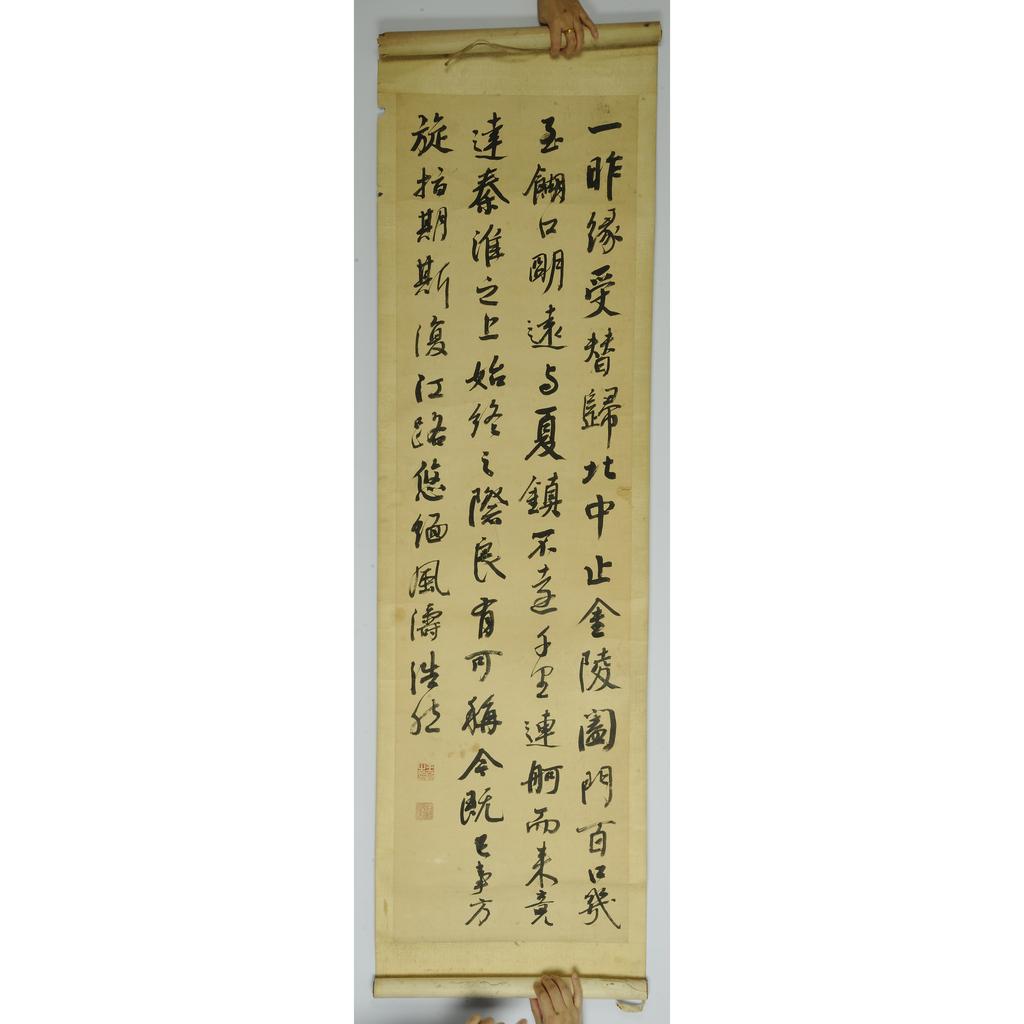 一昨緣受替歸北中止金陵闔門百口幾
至餬口明遠与夏鎮不遠千里連舸而来竟
達秦淮之上始終之際良有可稱今既已事方
旋指期斯復江路悠緬風濤浩然